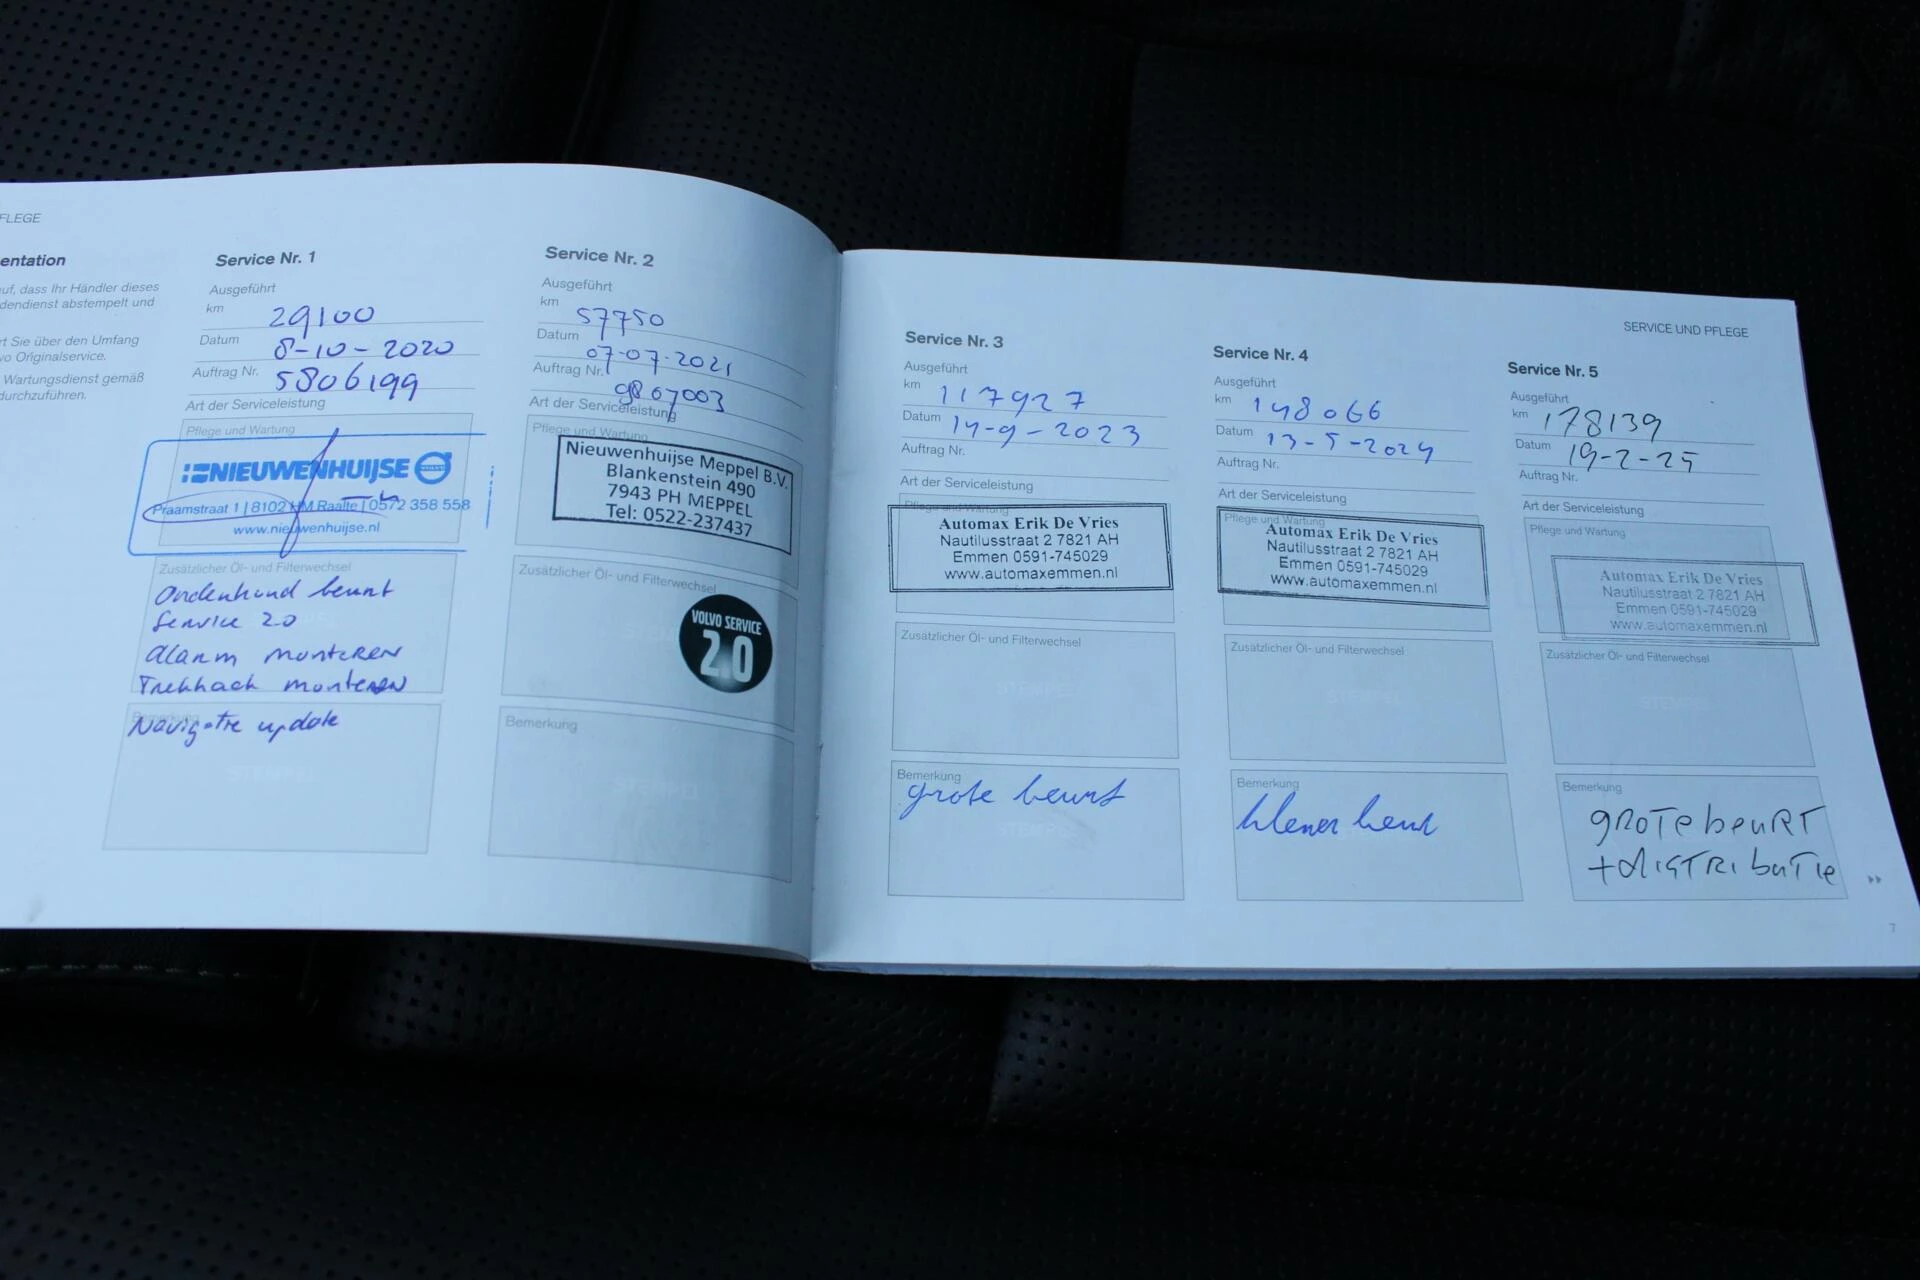 FLEGE
entation
uf, dass Ihr Händler dieses
dendienst abstempelt und
rt Sie über den Umfang
vo Originalservice.
Wartungsdienst gemäß
durchzuführen.
Service Nr. 1
Ausgeführt
km 29100
Datum 8-10-2020
Auftrag Nr. 5806199
Art der Serviceleistung
Pflege und Wartung
NIEUWENHUIJSE VOLVO
Praamstraat 1 | 8102 HM Raalte | 0572 358 558
www.nieuwenhuijse.nl
Zusätzlicher Öl- und Filterwechsel
Onderhoud beurt
Service 2.0
Alarm monteren
Trekhaak monteren
Bemerkung
Navigatie update
STEMPEL
Service Nr. 2
Ausgeführt
km 57750
Datum 07-07-2021
Auftrag Nr. 9867003
Art der Serviceleistung
Pflege und Wartung
Nieuwenhuijse Meppel B.V.
Blankenstein 490
7943 PH MEPPEL
Tel: 0522-237437
Zusätzlicher Öl- und Filterwechsel
VOLVO SERVICE
2.0
Bemerkung
STEMPEL
SERVICE UND PFLEGE
Service Nr. 3
Ausgeführt
km 117927
Datum 14-9-2023
Auftrag Nr.
Art der Serviceleistung
Pflege und Wartung
Automax Erik De Vries
Nautilusstraat 2 7821 AH
Emmen 0591-745029
www.automaxemmen.nl
Zusätzlicher Öl- und Filterwechsel
STEMPEL
Bemerkung
grote beurt
STEMPEL
Service Nr. 4
Ausgeführt
km 148066
Datum 13-5-2024
Auftrag Nr.
Art der Serviceleistung
Pflege und Wartung
Automax Erik De Vries
Nautilusstraat 2 7821 AH
Emmen 0591-745029
www.automaxemmen.nl
Zusätzlicher Öl- und Filterwechsel
STEMPEL
Bemerkung
Service Nr. 5
Ausgeführt
km 178139
Datum 19-2-25
Auftrag Nr.
Art der Serviceleistung
Pflege und Wartung
Automax Erik De Vries
Nautilusstraat 2 7821 AH
Emmen 0591-745029
www.automaxemmen.nl
Zusätzlicher Öl- und Filterwechsel
STEMPEL
Bemerkung
grote beurt
+distributie
7